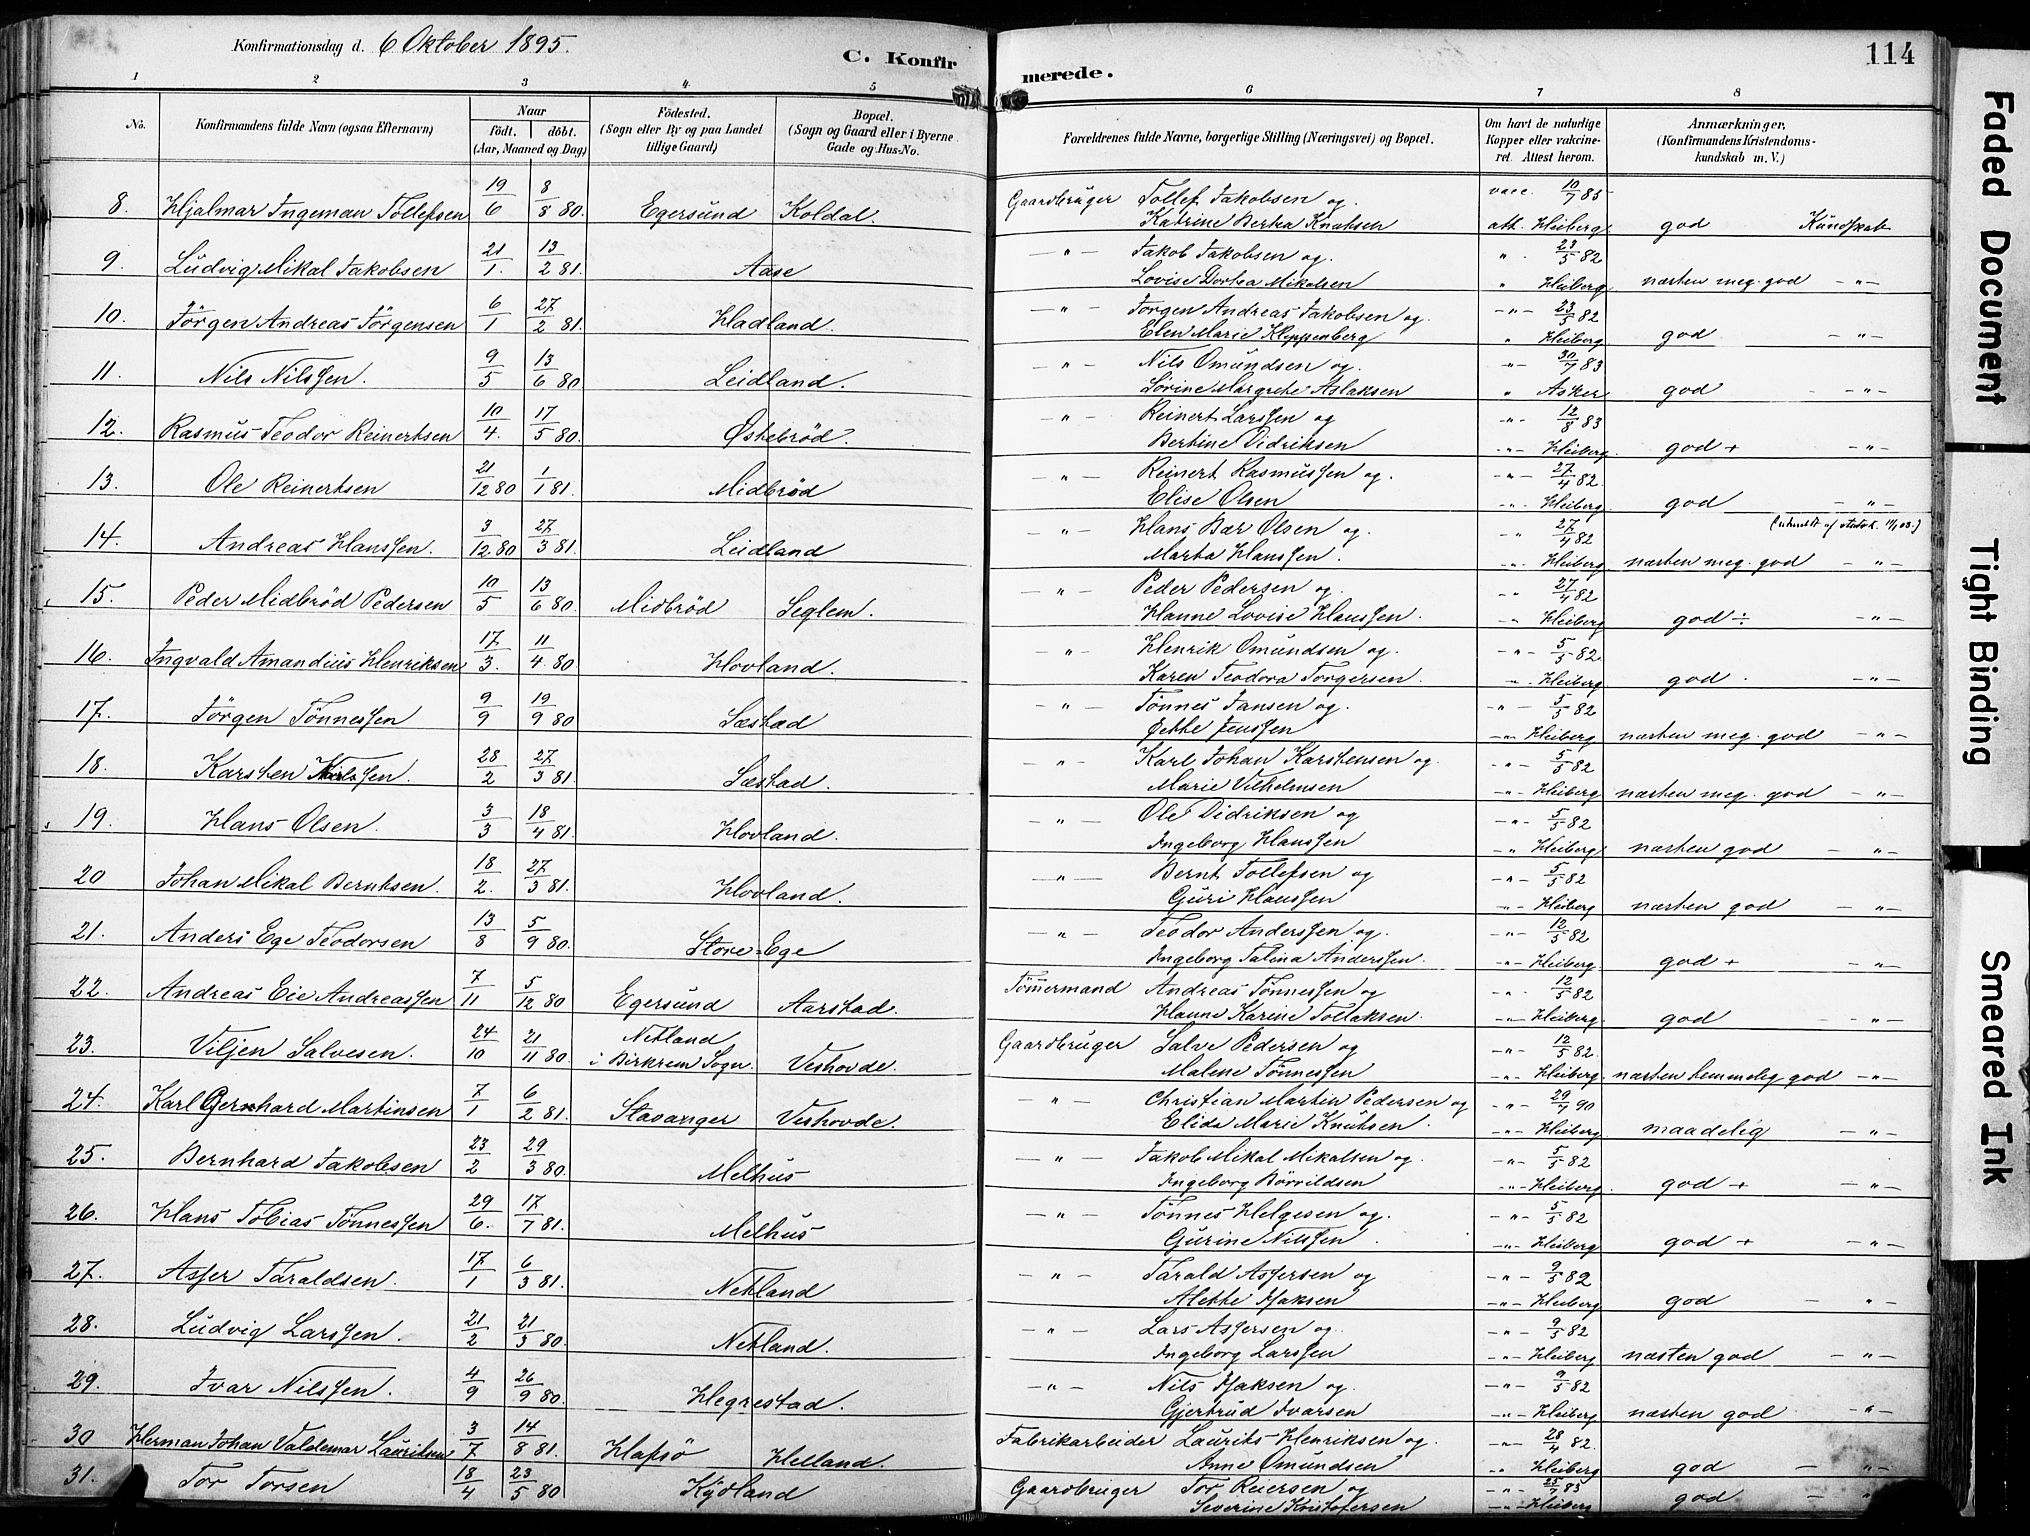 Konfirmationsdag d. 6 Oktober 1895.
C. Konfirmerede.
114
1 2 3 4 5 6 7 8
No.
Konfirmandens fulde Navn (ogsaa Efternavn)
Naar
födt. döbt.
(Aar, Maaned og Dag)
Födested.
(Sogn eller By og paa Landet
tillige Gaard)
Bopæl.
(Sogn og Gaard eller i Byerne
Gade og Hus-No.
Forældrenes fulde Navne, borgerlige Stilling (Næringsvei) og Bopæl.
Om havt de naturlige
Kopper eller vakcine-
ret. Attest herom.
Anmærkninger,
(Konfirmandens Kristendoms-
kundskab m. V.)
8. Hjalmar Ingeman Tollefsen 19/6 8/8 80 Egersund Koldal. Gaardbruger Tollef Jakobsen og vacc. 10/7 85
Katrine Berta Knutsen att. Heiberg god Kundskab
9. Ludvig Mikal Jakobsen 21/1. 13/2 81 Aase — " — Jakob Jakobsen og. " 23/5 82
Lovise Dortea Mikalsen " Heiberg næsten meg. god — " —
10. Jörgen Andreas Jörgensen 6/1 27/2 81. Hadland. — " — Jörgen Andreas Jakobsen og. — " — 23/5 82
Elen Marie Kleppenberg " Heiberg god — " —
11. Nils Nilssen. 9/5 13/6 80 Leidland. — " — Nils Omundsen og. — " — 30/7 83
Sörine Margrete Aslaksen " Asker god — " —
12. Rasmus Teodor Reinertsen 10/4. 17/5 80. Østebröd. — " — Reinert Larssen og — " — 12/8 83
Bertine Didriksen — " — Heiberg. god + — " —
13. Ole Reinertsen 21/12 80 1/1 81. Midbröd — " — Reinert Rasmussen og. — " — 27/4 82.
Elise Olsen — " — Heiberg. god — " —
14. Andreas Hanssen. 3/12 80 27/3 81. Leidland — " — Hans Bær Olsen og. — " — 27/4 82
Marta Hanssen. — " — Heiberg næsten meg. god — " —
15. Peder Midbröd Pedersen 10/5 13/6 80. Midbröd Seglem. — " — Peder Pedersen og. — " — 27/4 82
Hanne Lovise Hanssen. — " — Heiberg god ÷ — " —
16. Ingvald Amandius Henriksen 17/3. 11/4 80 Hovland. — " — Henrik Omundsen og. — " — 5/5 82.
Karen Teodora Torgersen. — " — Heiberg god. — " —
17. Jörgen Tönnessen 9/9 19/9 80 Sæstad — " — Tönnes Jansen og. — " — 5/5 82
Jette Jenssen — " — Heiberg næsten meg. god — " —
18. Karsten Karlssen. 28/2 27/3 81. Sæstad. — " — Karl Johan Karstensen og — " — 5/5 82
Marie Vilhelmsen — " — Heiberg næsten meg. god — " —
19. Hans Olsen. 3/3 18/4 81. Hovland. — " — Ole Didriksen og — " — 5/5 82
Ingeborg Hanssen — " — Heiberg næsten god — " —
20 Johan Mikal Berntsen. 18/2. 27/3 81. Hovland. — " — Bernt Tollefsen og — " — 5/5 82
Guri Hanssen — " — Heiberg næsten god — " —
21. Anders Ege Teodorsen 13/8 5/9 80. Store-Ege — " — Teodor Anderssen og. — " — 12/5 82
Ingeborg Talina Anderssen. — " — Heiberg. god + — " —
22. Andreas Eie Andreassen 7/11 5/12 80 Egersund Aarstad. Tömmermand Andreas Tönnessen og " 12/5 82
Hanne Karine Tollaksen. — " — Heiberg. god — " —
23. Viljen Salvesen. 24/10 21/11 80. Netland
i Birkrem Sogn. Veshovde. Gaardbruger Salve Pedersen og — " — 12/5 82.
Malene Tönnessen — " — Heiberg. næsten temmelig god — " —
24. Karl Gernhard Martinsen 7/1 6/2 81. Stavanger Veshovde. — " — Christian Martin Pedersen og — " — 29/7 90
Elida Marie Knutsen. — " — Heiberg maadelig — " —
25. Bernhard Jakobsen 23/2 29/3 80. Melhus — " — Jakob Mikal Mikalsen og. — " — 5/5 82
Ingeborg Börrildsen — " — Heiberg. god + — " —
26. Hans Tobias Tönnessen 29/6. 17/7 81. Melhus — " — Tönnes Helgesen og. — " — 5/5 82
Gurine Nilssen. — " — Heiberg god + — " —
27. Asser Taraldsen. 17/1 6/3 81. Netland — " — Tarald Assersen og — " — 9/5 82
Alette Isaksen — " — Heiberg god — " —
28. Ludvig Larssen. 21/2 21/3 80. Netland. — " — Lars Assersen og. — " — 9/5 82
Ingeborg Larssen — " — Heiberg næsten god — " —
29. Ivar Nilssen. 4/9 26/9 80. Hegrestad. — " — Nils Isaksen og. — " — 9/5 82
Gjertrud Ivarsen — " — Heiberg næsten god "
30 Herman Johan Valdemar Lauritsen 3/7 14/8 81. Hafsö Helland. Fabrikarbeider Laurits Henriksen og. — " — 28/4 82.
Anne Omundsen " Heiberg god — " —
31. Tor Torsen 18/4 23/5 80 Kydland Gaardbruger Tor Reiersen og — " — 25/7 83
Severine Kristofersen — " — Heiberg god — "
Faded Document
Tight Binding
Smeared Ink